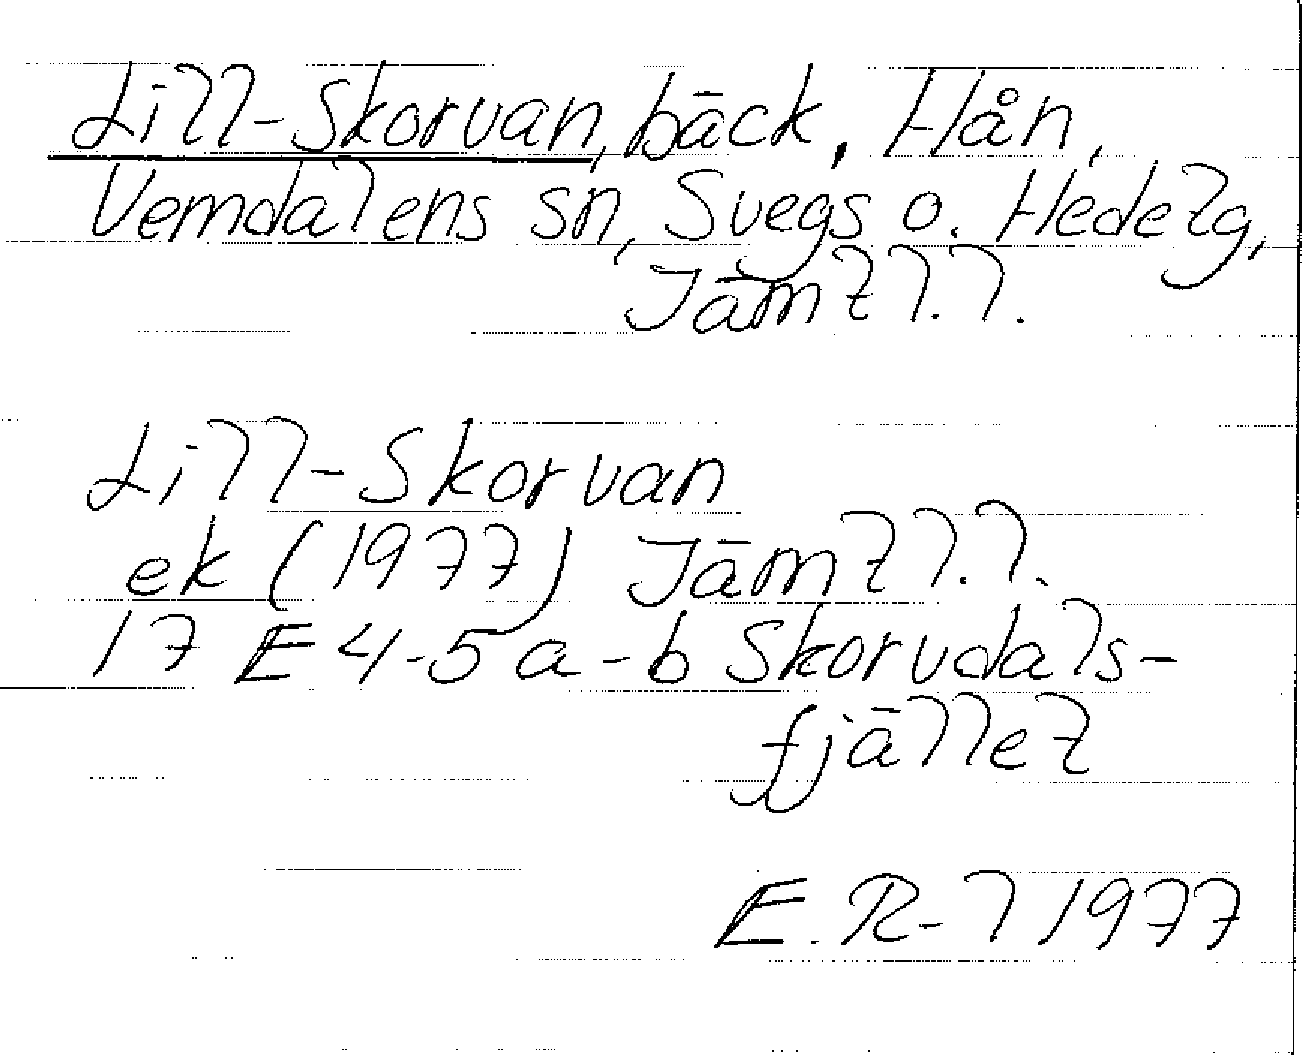 Lill-Skorvan, bäck, Hån,
Vemdalens sn, Svegs o. Hedelg,
Jämtl.l.
Lill-Skorvan
ek (1977) Jämtl.l.
17 E 4-5 a-b Skorvdals-
fjället
E. R-l 1977